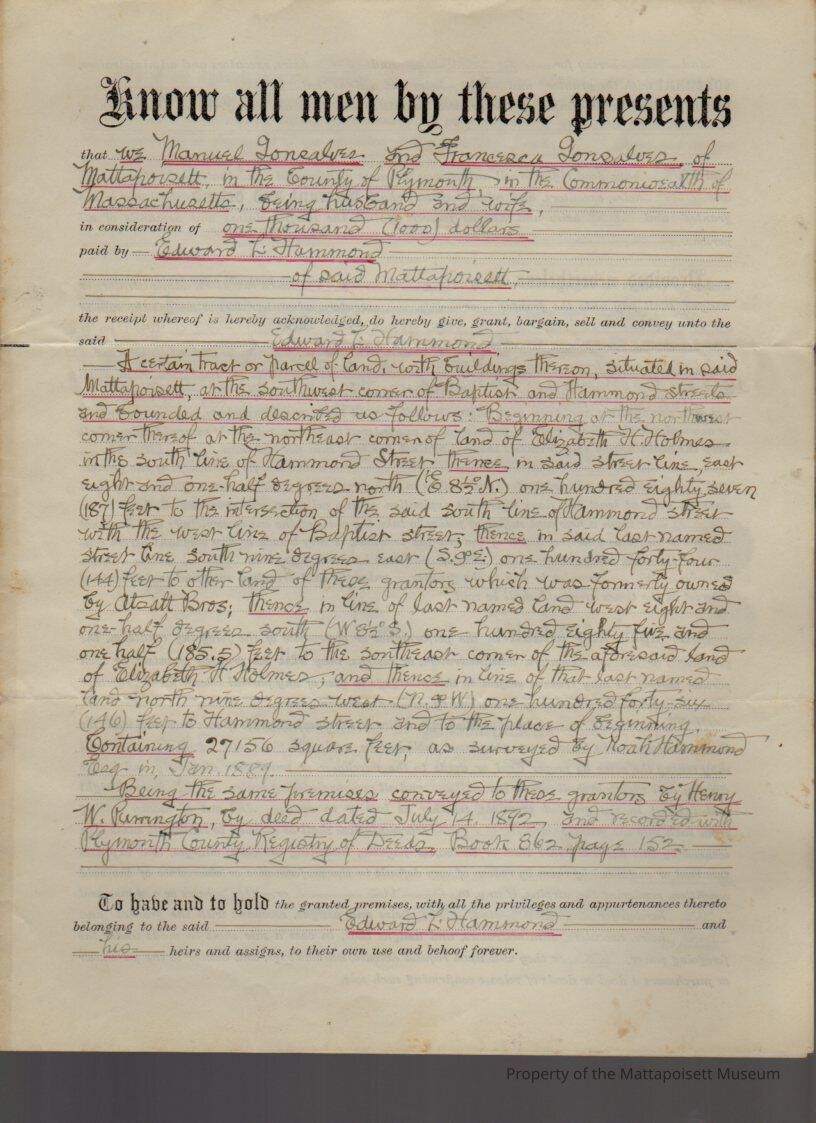 Know all men by these presents
that we Manuel Gonsalves and Francesca Gonsalves, of
Mattapoisett, in the County of Plymouth, in the Commonwealth of
Massachusetts, being husband and wife,
in consideration of one thousand (1000) dollars
paid by Edward L. Hammond
of said Mattapoisett,
the receipt whereof is hereby acknowledged, do hereby give, grant, bargain, sell and convey unto the
said Edward L. Hammond
A certain tract or parcel of land, with buildings thereon, situated in said
Mattapoisett, at the southwest corner of Baptist and Hammond streets
and bounded and described as follows: Beginning at the northwest
corner thereof at the northeast corner of land of Elizabeth H. Holmes
in the south line of Hammond Street, thence in said street line, east
eight and one-half degrees north (E. 8½° N.) one hundred eighty seven
(187) feet to the intersection of the said south line of Hammond street
with the west line of Baptist street; thence in said last named
street line south nine degrees east (S. 9° E) one hundred forty-four
(144) feet to other land of these grantors which was formerly owned
by Atsatt Bros; thence in line of last named land west eight and
one-half degrees south (W. 8½° S.) one hundred eighty five and
one half (185.5) feet to the southeast corner of the aforesaid land
of Elizabeth H. Holmes; and thence in line of that last named
land north nine degrees west (N. 9° W) one hundred forty-six
(146) feet to Hammond street and to the place of beginning.
Containing 27156 square feet, as surveyed by Noah Hammond
Esq. in, Jan. 1889.
Being the same premises conveyed to these grantors by Henry
W. Purrington, by deed dated July 14. 1892, and recorded with
Plymouth County Registry of Deeds, Book 862 page 152.
To have and to hold the granted premises, with all the privileges and appurtenances thereto
belonging to the said Edward L. Hammond and
his heirs and assigns, to their own use and behoof forever.
Property of the Mattapoisett Museum